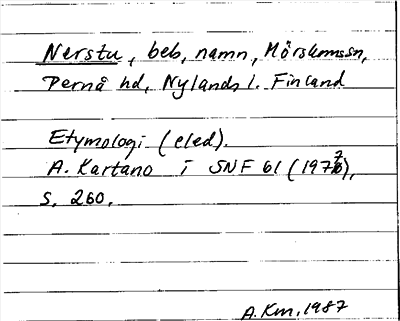 Nerstu, beb, namn, Mörskomssn,
Pernå hd, Nylands l. Finland
Etymologi (eled).
A. Kartano i SNF 61 (197),
s. 260.
A. Km, 1987